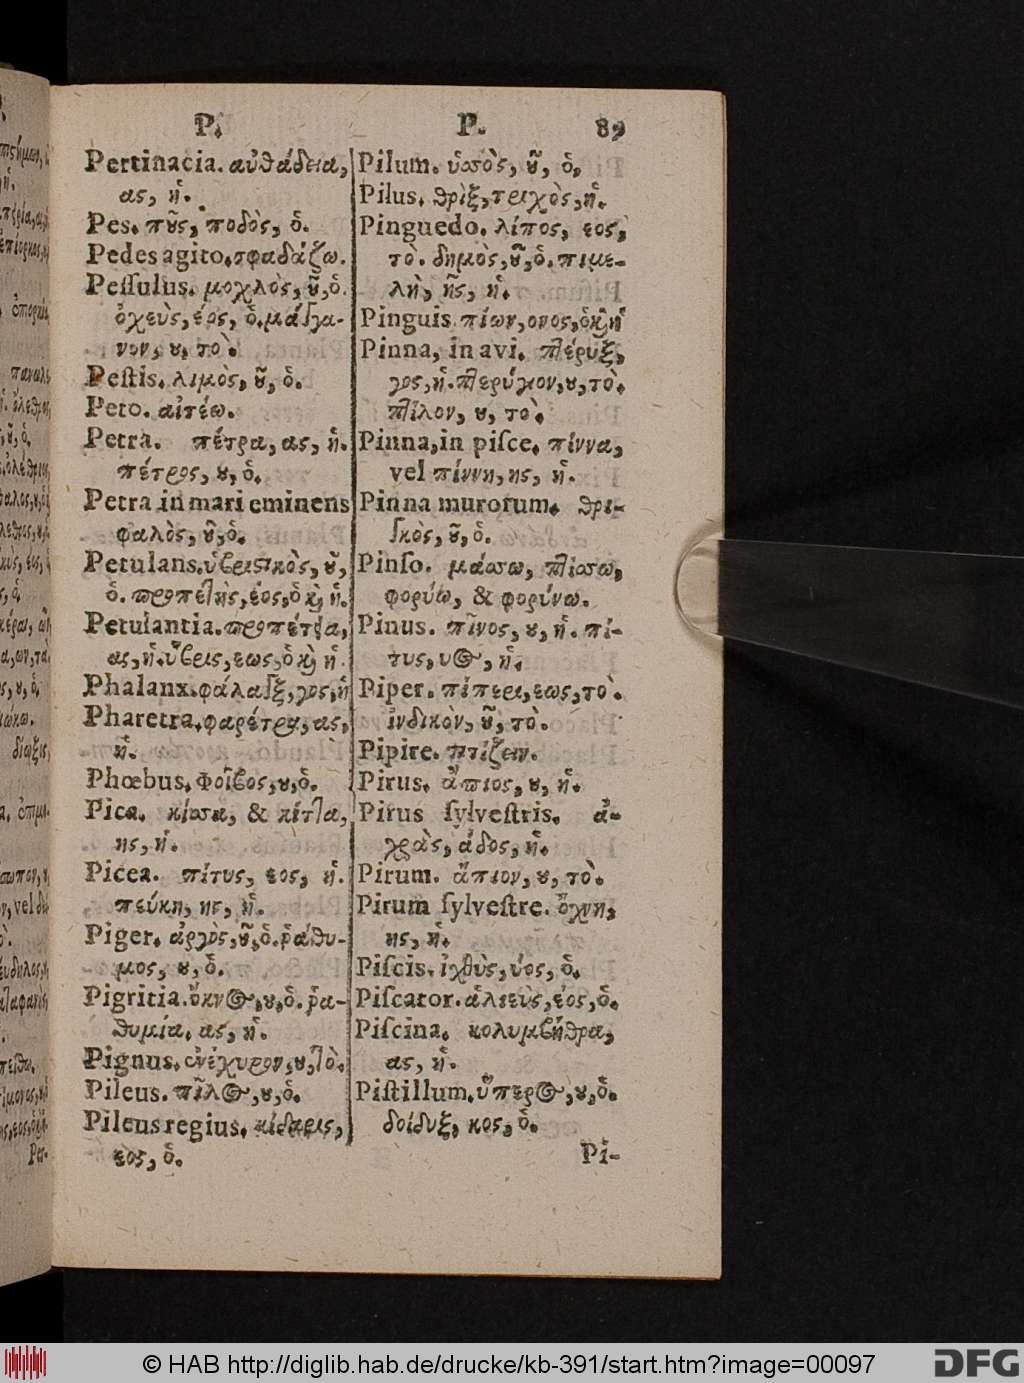 P.
Pertinacia. αὐθάδεια,
ας, ἡ.
Pes. πῦς, ποδὸς, ὁ.
Pedes agito. σφαδάζω.
Peſſulus. μοχλὸς, ȣ͂, ὁ.
ὀχεὺς, έος, ὁ. μάγγα-
νον, ȣ, τὸ.
Peſtis. λιμὸς, ȣ͂, ὁ.
Peto. αἰτέω.
Petra. πέτρα, ας, ἡ.
πέτρος, ȣ, ὁ.
Petra in mari eminens
φαλὸς, ȣ͂, ὁ.
Petulans. ὑβριστικὸς, ȣ͂,
ὁ. προπετὴς, έος, ὁ κὶ ἡ.
Petulantia. προπέτεια,
ας, ἡ. ὕβρις, εως, ὁ κὶ ἡ.
Phalanx. φάλαγξ, γος, ἡ
Pharetra. φαρέτρα, ας,
ἡ.
Phœbus. Φοῖβος, ȣ, ὁ.
Pica. κίσσα, & κίττα,
ης, ἡ.
Picea. πίτυς, εος, ἡ.
πεύκη, ης, ἡ.
Piger. ἀργὸς, ȣ͂, ὁ. ῥάθυ-
μος, ȣ, ὁ.
Pigritia. ὄκνος, ȣ, ὁ. ῥα-
θυμία, ας, ἡ.
Pignus. ἐνέχυρον, ȣ, τὸ.
Pileus. πῖλος, ȣ, ὁ.
Pileus regius. κίδαρις,
εος, ὁ.
P. 89
Pilum. ὑσσὸς, ȣ͂, ὁ.
Pilus. θρὶξ, τριχὸς, ἡ.
Pinguedo. λίπος, εος,
τὸ. δημὸς, ȣ͂, ὁ. πιμε-
λὴ, ῆς, ἡ.
Pinguis. πίων, ονος, ὁ κὶ ἡ
Pinna, in avi. πτέρυξ,
γος, ἡ. πτερύγιον, ȣ, τὸ.
πτίλον, ȣ, τὸ.
Pinna, in piſce. πίννα,
vel πίννη, ης, ἡ.
Pinna murorum. θρι-
γκὸς, ȣ͂, ὁ.
Pinſo. μάσσω, πτίσσω,
φορύω, & φορύνω.
Pinus. πῖνος, ȣ, ἡ. πί-
τυς, υος, ἡ.
Piper. πίπερι, εως, τὸ.
ἰνδικὸν, ȣ͂, τὸ.
Pipire. πιπίζειν.
Pirus. ἄπιος, ȣ, ἡ.
Pirus ſylveſtris. ἀ-
χρὰς, άδος, ἡ.
Pirum. ἄπιον, ȣ, τὸ.
Pirum ſylveſtre. ὄχνη,
ης, ἡ.
Piſcis. ἰχθὺς, ύος, ὁ.
Piſcator. ἁλιεὺς, έος, ὁ.
Piſcina. κολυμβήθρα,
ας, ἡ.
Piſtillum. ὕπερος, ȣ, ὁ.
δοίδυξ, κος, ὁ.
Pi-
© HAB http://diglib.hab.de/drucke/kb-391/start.htm?image=00097
DFG